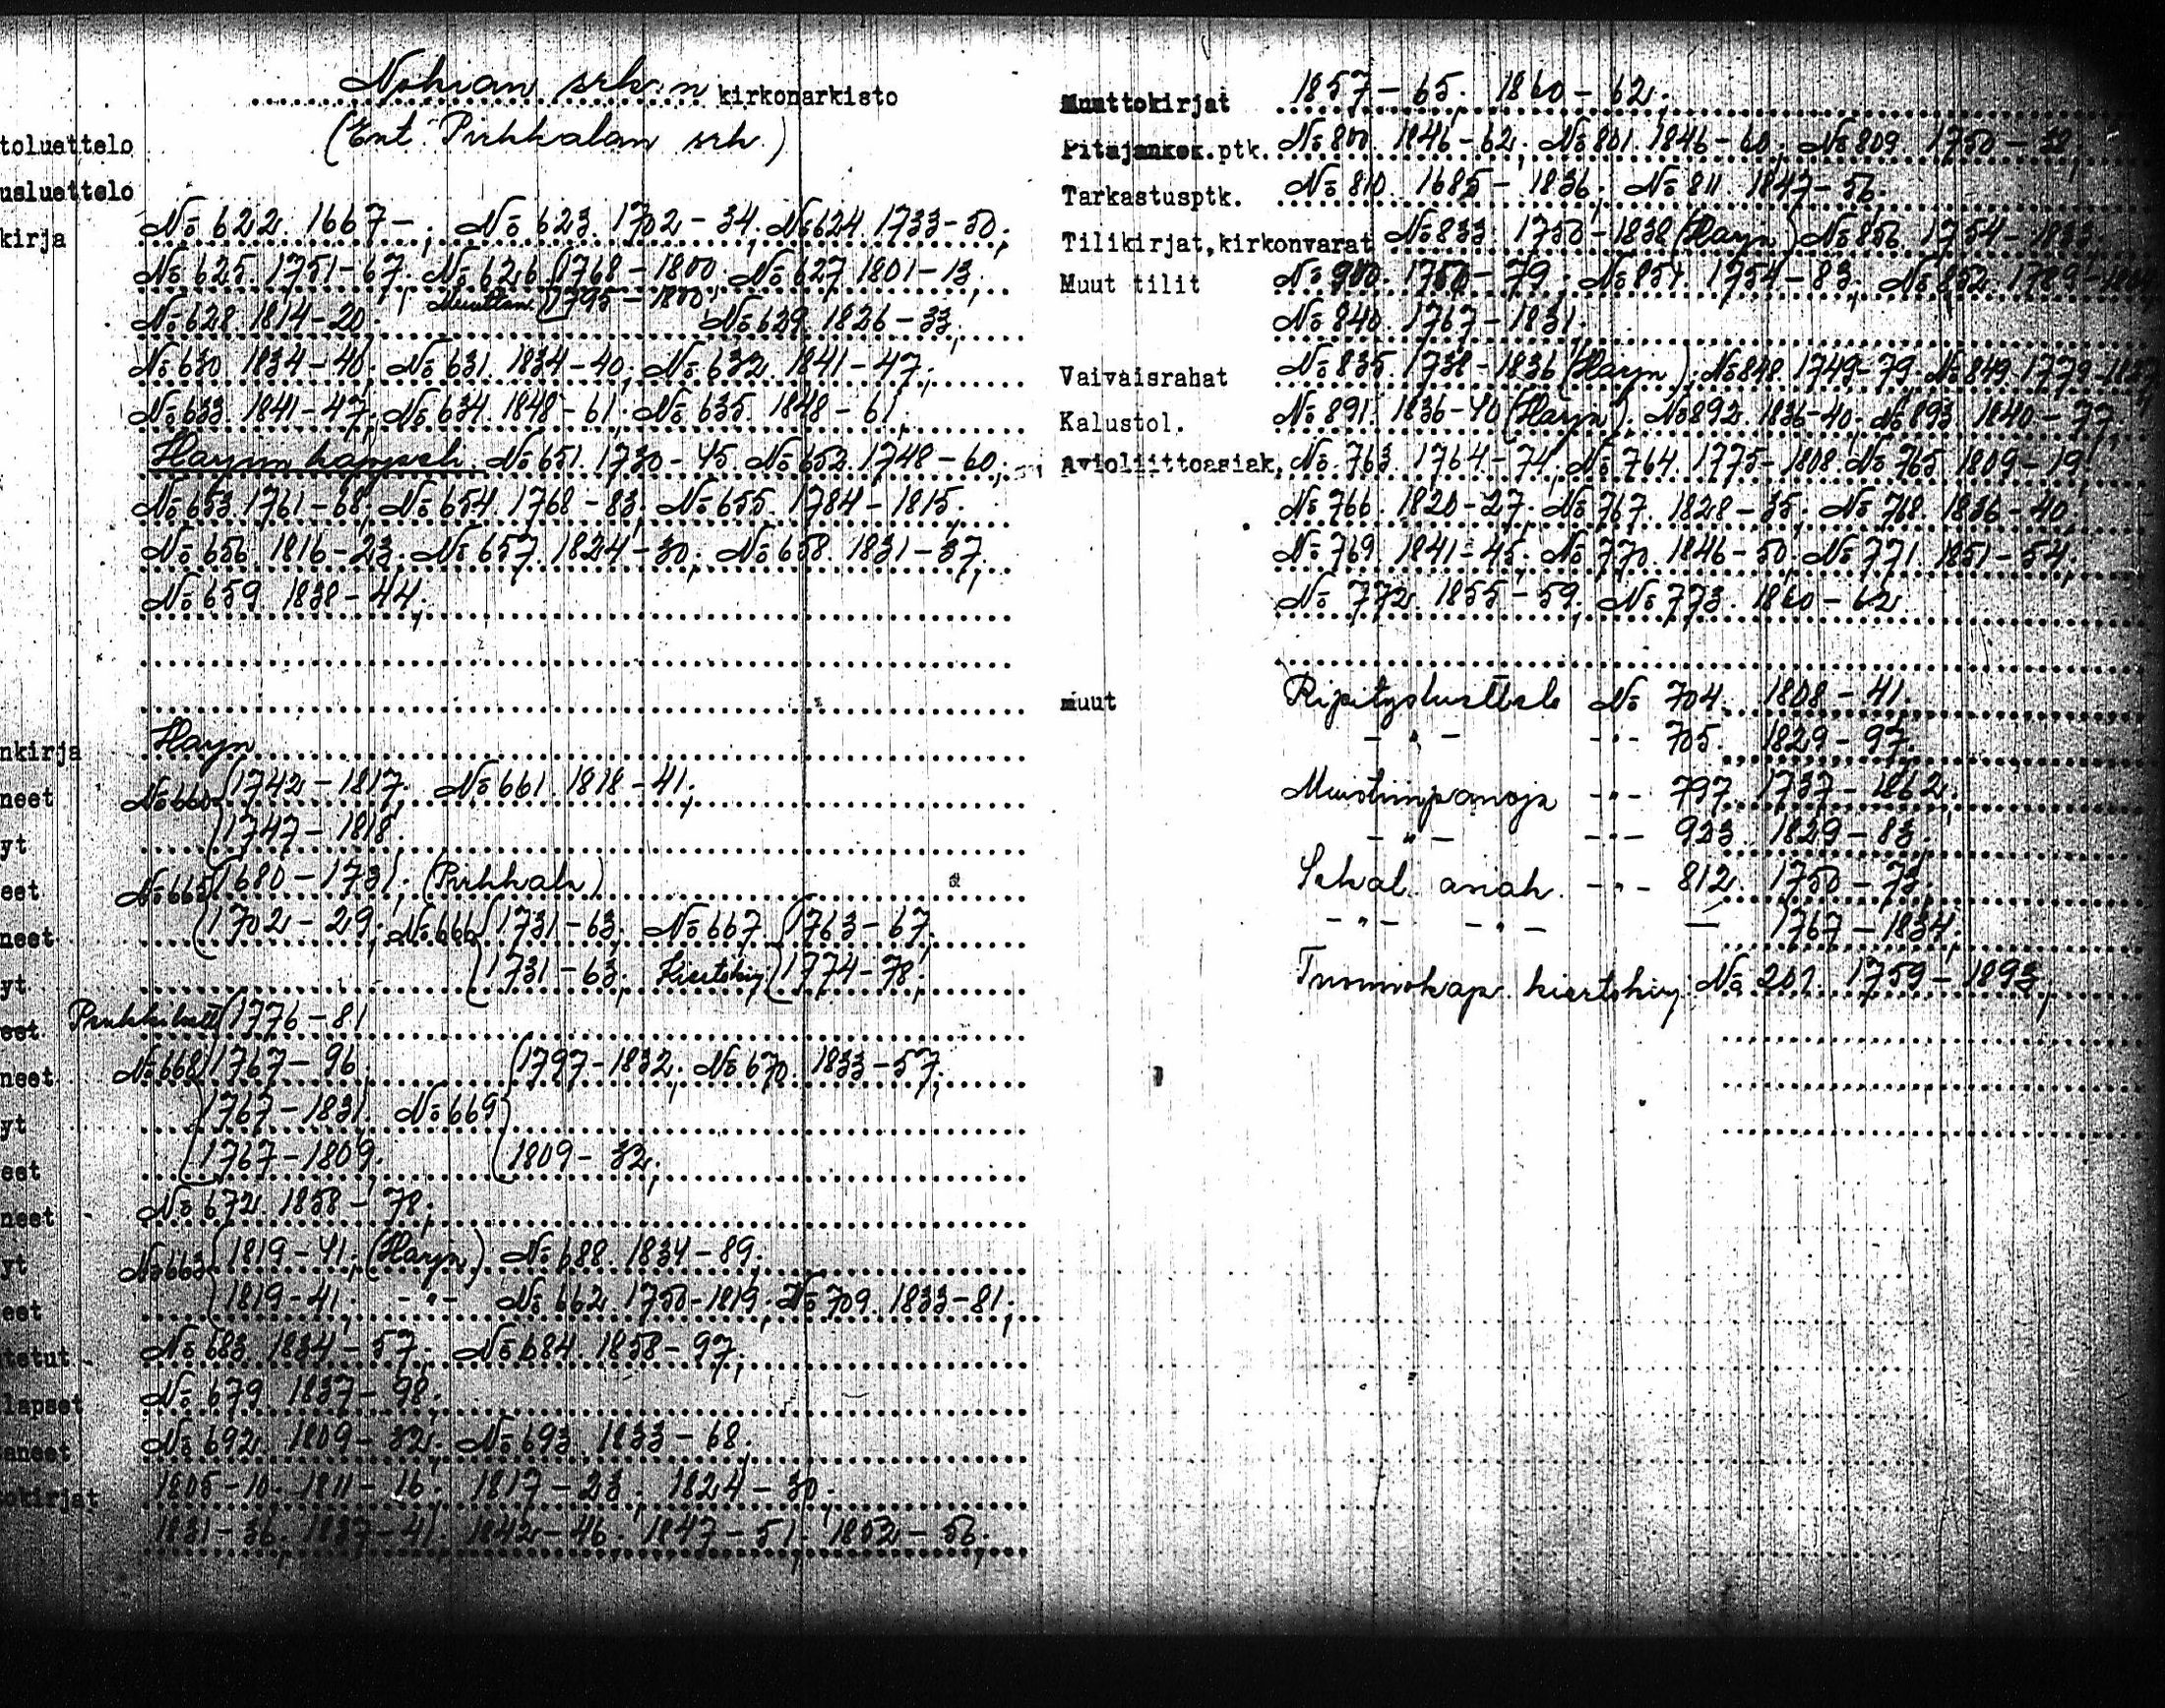 Nokian srk:n kirkonarkisto
(Ent. Pirkkalan srk.)
toluettelo
usluettelo
kirja № 622. 1667-; № 623. 1702-34; № 624. 1733-50;
№ 625. 1751-67; № 626 (1768-1800; № 627 1801-13;
Muuttan. (1795-1800;
№ 628. 1814-20; № 629. 1826-33;
№ 630 1834-40; № 631. 1834-40; № 632. 1841-47;
№ 633. 1841-47; № 634. 1848-61; № 635. 1848-61;
Harjun kappeli. № 651. 1730-45. № 652. 1748-60;
№ 653. 1761-68; № 654. 1768-83; № 655. 1784-1815;
№ 656 1816-23; № 657. 1824-30; № 658. 1831-37;
№ 659 1838-44;
nkirja Harju
neet № 660 (1742-1817; № 661. 1818-41;
yt (1747-1818.
eet № 665 (1680-1731; (Pirkkala)
neet (1702-29; № 666 (1731-63; № 667 (1763-67;
yt (1731-63; Kiertokirj. (1774-78;
eet (1776-81
neet № 668 (1767-96 (1797-1832; № 670. 1833-57;
yt (1767-1831. № 669
eet (1767-1809; (1809-32;
neet № 672 1858-78;
yt № 663 (1819-41; (Harju) № 688. 1834-89;
eet (1819-41; -"- № 662. 1750-1819; № 709. 1833-81;
tetut № 683. 1834-57; № 684. 1858-97;
lapset № 679 1837-98;
aneet № 692. 1809-32; № 693. 1833-68;
okirjat 1805-10; 1811-16; 1817-23; 1824-30;
1831-36; 1837-41; 1842-46; 1847-51; 1852-56;
Muuttokirjat 1857-65; 1860-62;
Pitäjänkok.ptk. № 800. 1846-62; № 801. 1846-60; № 809. 1750-
Tarkastusptk. № 810. 1685-1836; № 811. 1847-56;
Tilikirjat,kirkonvarat № 833. 1750-1838 (Harju) № 856. 1754-
Muut tilit № 900. 1750-79; № 851. 1754-83; № 852. 1789-
№ 840. 1767-1831;
Vaivaisrahat № 835. 1738-1836 (Harju); № 848. 1749-79 № 849. 1779-
Kalustol. № 891. 1836-40 (Harju); № 892. 1836-40; № 893 1840-77;
Avioliittoasiak. № 763 1764-74; № 764. 1775-1808. № 765 1809-19;
№ 766. 1820-27; № 767. 1828-35; № 768. 1836-40;
№ 769. 1841-45; № 770. 1846-50. № 771. 1851-54;
№ 772. 1855-59; № 773. 1860-62
muut Ripitysluettelo № 704. 1808-41.
-"- -"- 705. 1829-97.
Muistiinpanoja -"- 797. 1737-1862;
-"- -"- 923. 1829-83;
Sekal. asiak. -"- 812. 1750-73;
-"- -"- — 1767-1834;
Tuomiokap. kiertokirj. № 201. 1759-1893;